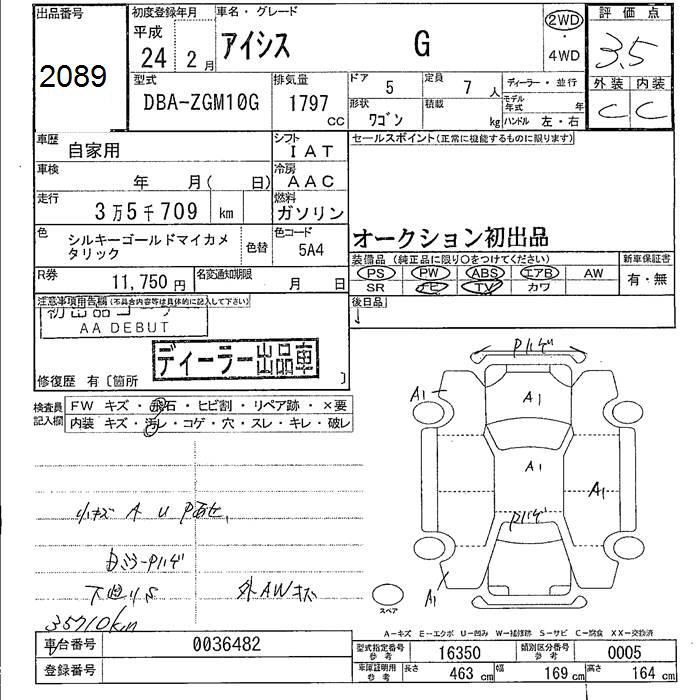 出品番号 初度登録年月 車名・グレード 評価点
平成
24 2月 アイシス G 2WD ・ 4WD 3.5
2089 型式 排気量 ドア 5 定員 7人 ディーラー・並行 外装 内装
DBA-ZGM10G 1797 CC 形状 ワゴン 積載 kg モデル年式 年 C C
ハンドル 左・右
車歴 自家用 シフト IAT セールスポイント(正常に機能するものに限ります)
車検 年 月( 日) 冷房 AAC
走行 3万5千709 km 燃料 ガソリン
色 シルキーゴールドマイカメタリック 色替 色コード 5A4 オークション初出品
装備品(純正品に限り○をつけてください) 新車保証書
R券 11,750円 名変通知期限 月 日 PS PW ABS エアB AW 有・無
SR ナビ TV カワ
注意事項申告欄(不具合内容等は具体的に記入して下さい) 後日品
初出品コーナー ↓
AA DEBUT
ディーラー出品車
修復歴 有〔箇所 〕
検査員記入欄 FW キズ・飛石・ヒビ割・リペア跡・×要
内装 キズ・汚レ・コゲ・穴・スレ・キレ・破レ
Pハゲ
A1 A1
A1
A1
Pハゲ
小キズ A U
Pハゲ
下廻りS 外AWキズ
35710km
A1
スペア
A-キズ E-エクボ U-凹み W-補修跡 S-サビ C-腐食 XX-交換済
車台番号 0036482 型式指定番号参考 16350 類別区分番号参考 0005
登録番号 車庫証明用参考 長さ 463 cm 幅 169 cm 高さ 164 cm